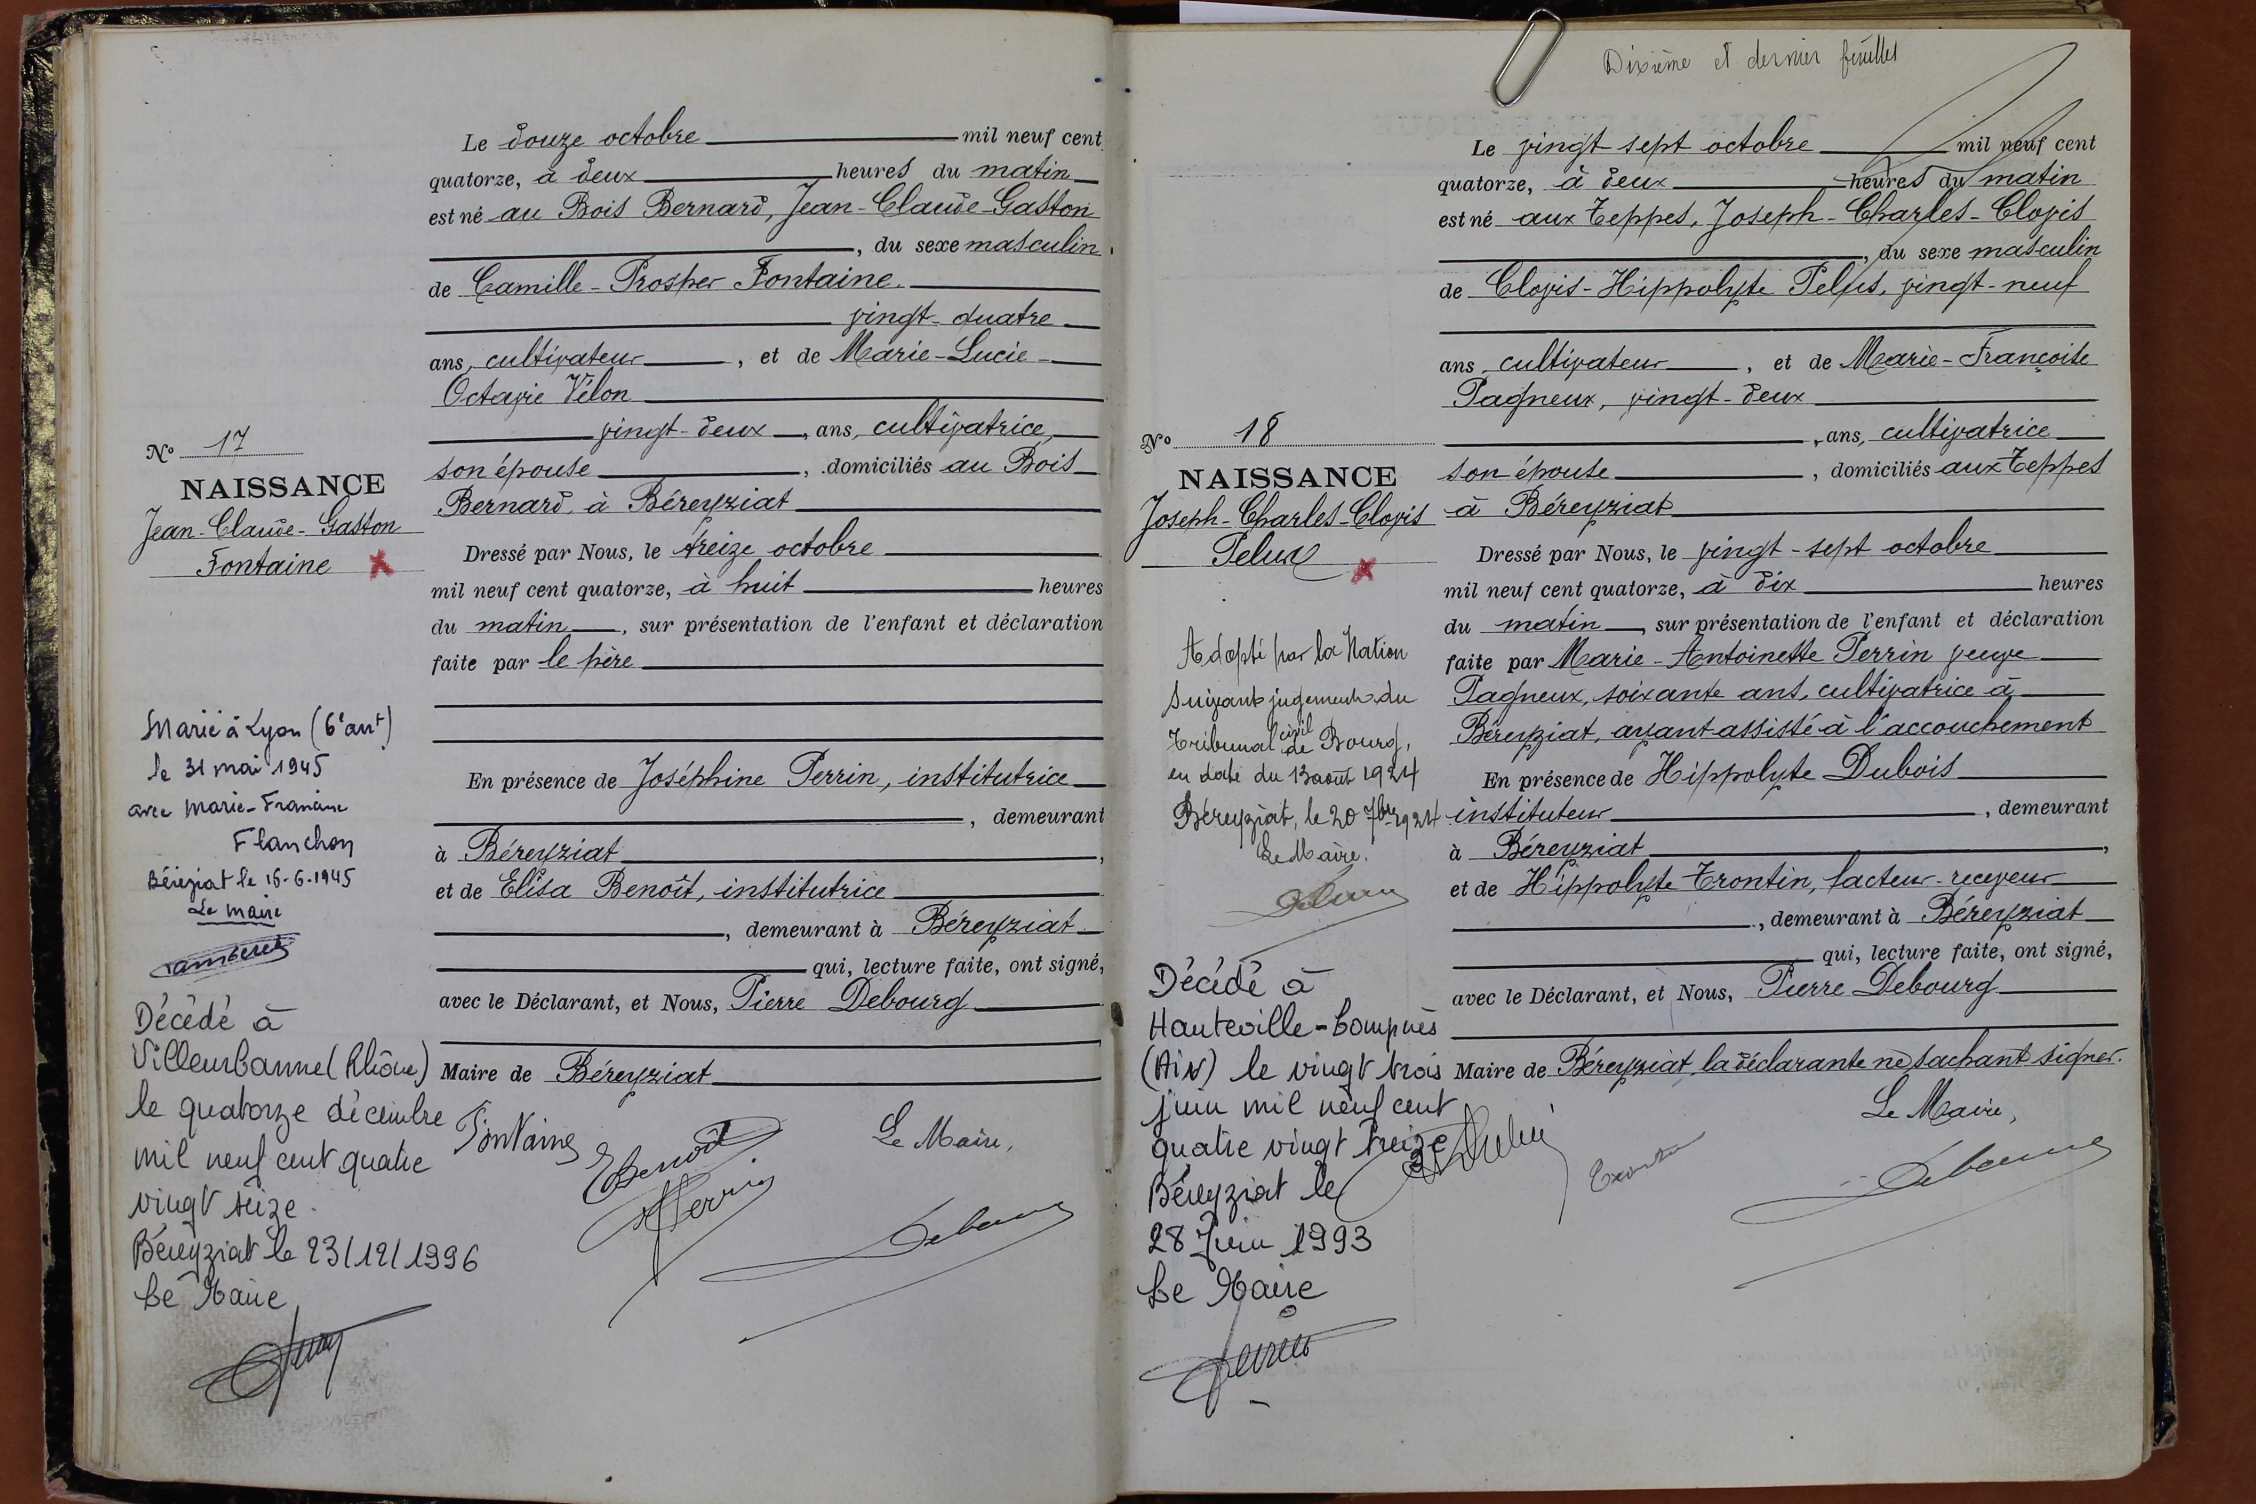 Le douze octobre mil neuf cent
quatorze, à deux heures du matin
est né au Bois Bernard, Jean-Claude-Gaston
, du sexe masculin
de Camille-Prosper Fontaine.
vingt-quatre
ans, cultivateur, et de Marie-Lucie-
Octavie Vélon
vingt-deux, ans, cultivatrice,
son épouse, domiciliés au Bois
Bernard, à Béreyziat
Dressé par Nous, le treize octobre
mil neuf cent quatorze, à huit heures
du matin, sur présentation de l'enfant et déclaration
faite par le père
En présence de Joséphine Perrin, institutrice
, demeurant
à Béreyziat,
et de Elisa Benoît, institutrice
, demeurant à Béreyziat
qui, lecture faite, ont signé,
avec le Déclarant, et Nous, Pierre Debourg
Maire de Béreyziat
Fontaine
EBenoît
Perrin
Le Maire,
Debourg
No 17
NAISSANCE
Jean-Claude-Gaston
Fontaine
Marié à Lyon (6e arrt)
le 31 mai 1945
avec Marie-Francine
Flanchon
Béreziat le 16-6-1945
Le maire
Décédé à
Villeurbanne (Rhône)
le quatorze décembre
mil neuf cent quatre
vingt seize.
Béreyziat le 23/12/1996
Le Maire
Dixième et dernier feuillet
Le vingt-sept octobre mil neuf cent
quatorze, à deux heures du matin
est né aux Teppes, Joseph-Charles-Clovis
, du sexe masculin
de Clovis-Hippolyte Pelus, vingt-neuf
ans, cultivateur, et de Marie-Françoise
Pagneux, vingt-deux
, ans, cultivatrice
son épouse, domiciliés aux Teppes
à Béreyziat
Dressé par Nous, le vingt-sept octobre
mil neuf cent quatorze, à dix heures
du matin, sur présentation de l'enfant et déclaration
faite par Marie-Antoinette Perrin veuve
Pagneux, soixante ans, cultivatrice à
Béreyziat, ayant assisté à l'accouchement
En présence de Hippolyte Dubois
instituteur, demeurant
à Béreyziat,
et de Hippolyte Trontin, facteur-receveur
, demeurant à Béreyziat
qui, lecture faite, ont signé,
avec le Déclarant, et Nous, Pierre Debourg
Maire de Béreyziat, la déclarante ne sachant signer.
Le Maire,
Trontin
Debourg
No 18
NAISSANCE
Joseph-Charles-Clovis
Pelux
Adopté par la Nation
suivant jugement du
Tribunal civil de Bourg,
en date du 13 août 1924
Béreyziat, le 20 7bre 1924
Le Maire.
Décédé à
Hauteville-Lompnès
(Ain) le vingt trois
juin mil neuf cent
quatre vingt treize
Béreyziat le
28 Juin 1993
Le Maire